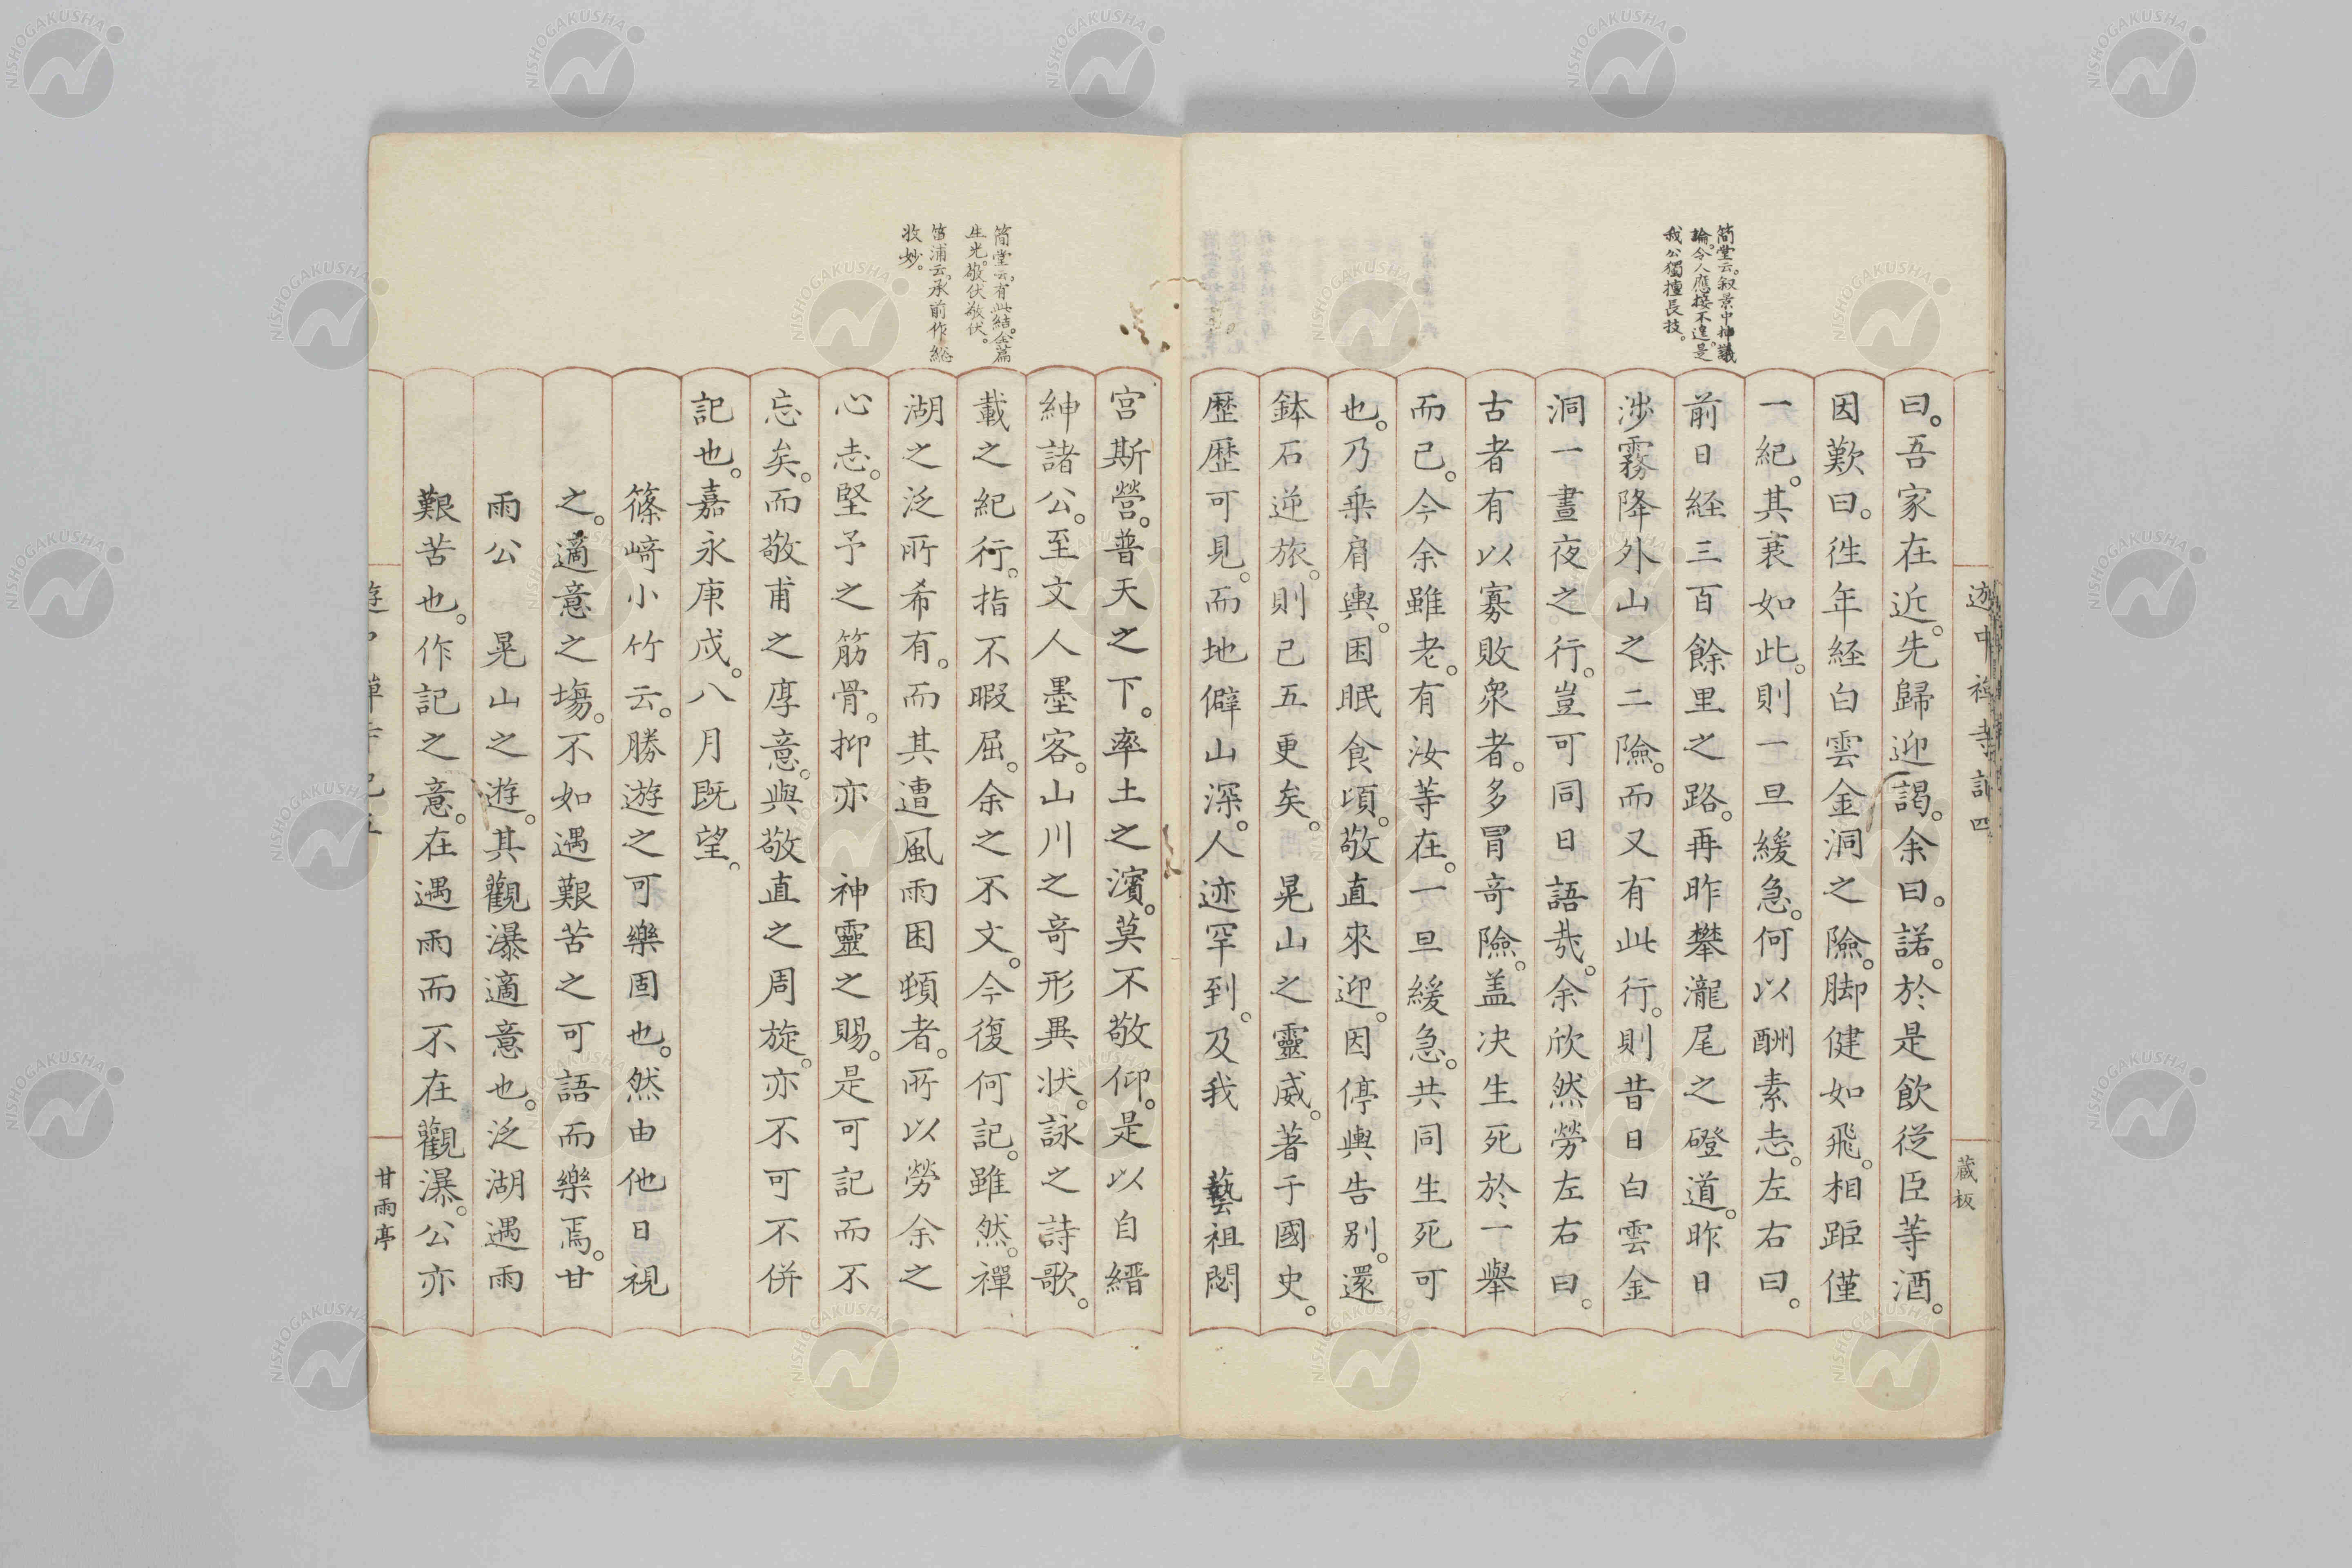 遊中禅寺記四
蔵板
簡堂云。叙景中挿議
論。令人應接不遑。是
我公獨擅長技。
曰。吾家在近。先歸迎謁。余曰。諾。於是飲従臣等酒。
因歎曰。徃年経白雲金洞之險。脚健如飛。相距僅
一紀。其衰如此。則一旦緩急。何以酬素志。左右曰。
前日経三百餘里之路。再昨攀瀧尾之磴道。昨日
渉霧降外山之二險。而又有此行。則昔日白雲金
洞一晝夜之行。豈可同日語哉。余欣然勞左右曰。
古者有以寡敗衆者。多冒竒險。盖决生死於一舉
而已。今余雖老。有汝等在。一旦緩急。共同生死可
也。乃乗肩輿。困眠食頃。敬直來迎。因停輿告别。還
鉢石逆旅。則已五更矣。晃山之靈威。著于國史。
歷歷可見。而地僻山深。人迹罕到。及我 藝祖閟
簡堂云。有此結。全篇
生光。敬伏敬伏。
篁浦云。承前作総
收妙。
宮斯營。普天之下。率土之濱。莫不敬仰。是以自縉
紳諸公。至文人墨客。山川之竒形異狀。詠之詩歌。
載之紀行。指不暇屈。余之不文。今復何記。雖然。禪
湖之泛所希有。而其遭風雨困頓者。所以勞余之
心志。堅予之筋骨。抑亦 神靈之賜。是可記而不
忘矣。而敬甫之厚意。與敬直之周旋。亦不可不併
記也。嘉永庚戌。八月既望。
篠﨑小竹云。勝遊之可樂固也。然由他日視
之。適意之塲。不如遇艱苦之可語而樂焉。甘
雨公 晃山之遊。其觀瀑適意也。泛湖遇雨
艱苦也。作記之意。在遇雨而不在觀瀑。公亦
甘雨亭